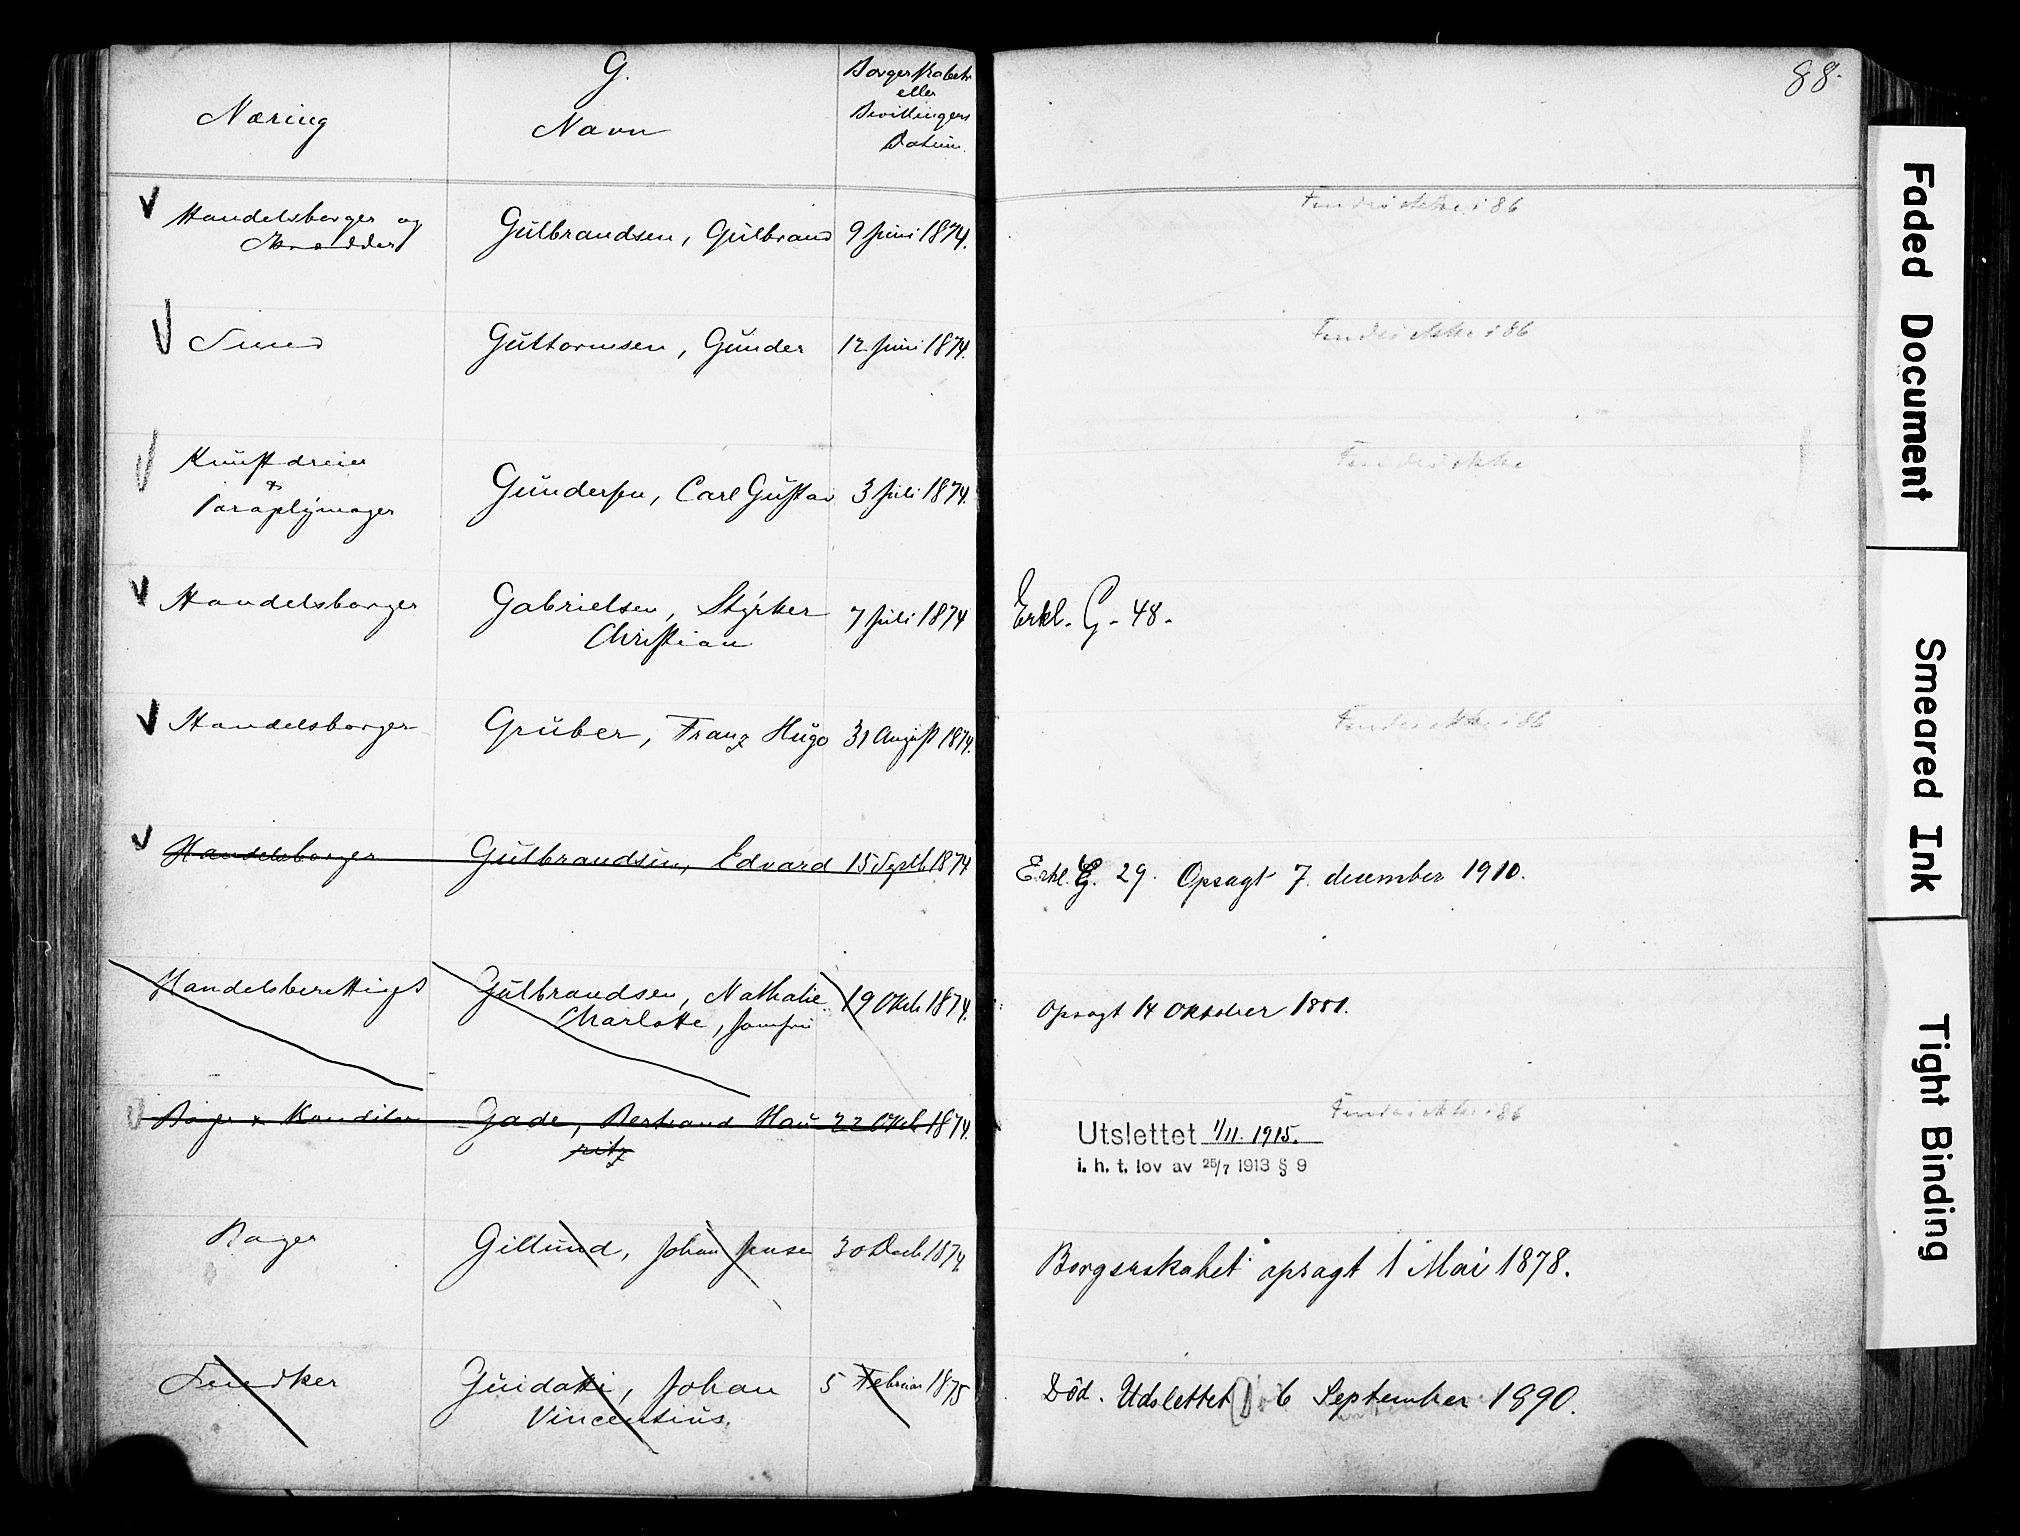 G.
88.
Næring
Navn
Borgerskabets
eller
Bevillingens
Datum.
Handelsborger og
Gulbrandsen, Gulbrand 9 Juni 1874.
Findes ikke i 86
Smed
Guttormsen, Gunder 12 Juni 1874.
Findes ikke i 86
Kunstdreier
&
Paraplymager
Gundersen, Carl Gustav 3 Juli 1874.
Findes ikke
Handelsborger
Gabrielsen, Styrker
Christian
7 Juli 1874
Erkl. G. 48.
Handelsborger
Gruber, Franz Hugo 31 August 1874.
Findes ikke i 86
Handelsborger
Gulbrandsen, Edvard 15 Septb 1874
Erkl. G. 29. Opsagt 7. december 1910.
Handelsberettiget
Gulbrandsen, Nathalie
Charlotte, Jomfru
19 Oktb 1874.
Opsagt 14 Oktober 1881.
Bager & Konditor
Gade, Bertrand Mau
ritz
22 Oktb 1874.
Findes ikke i 86
Utslettet 1/11. 1915.
i. h. t. lov av 25/7 1913 § 9
Bager
Gillund, Johan Jensen 30 Decb 1874
Borgerskabet opsagt 1 Mai 1878.
Snedker
Guidotti, Johan
Vincentius.
5 Februar 1875
Død. Udslettet 6 September 1890.
Faded Document
Smeared Ink
Tight Binding